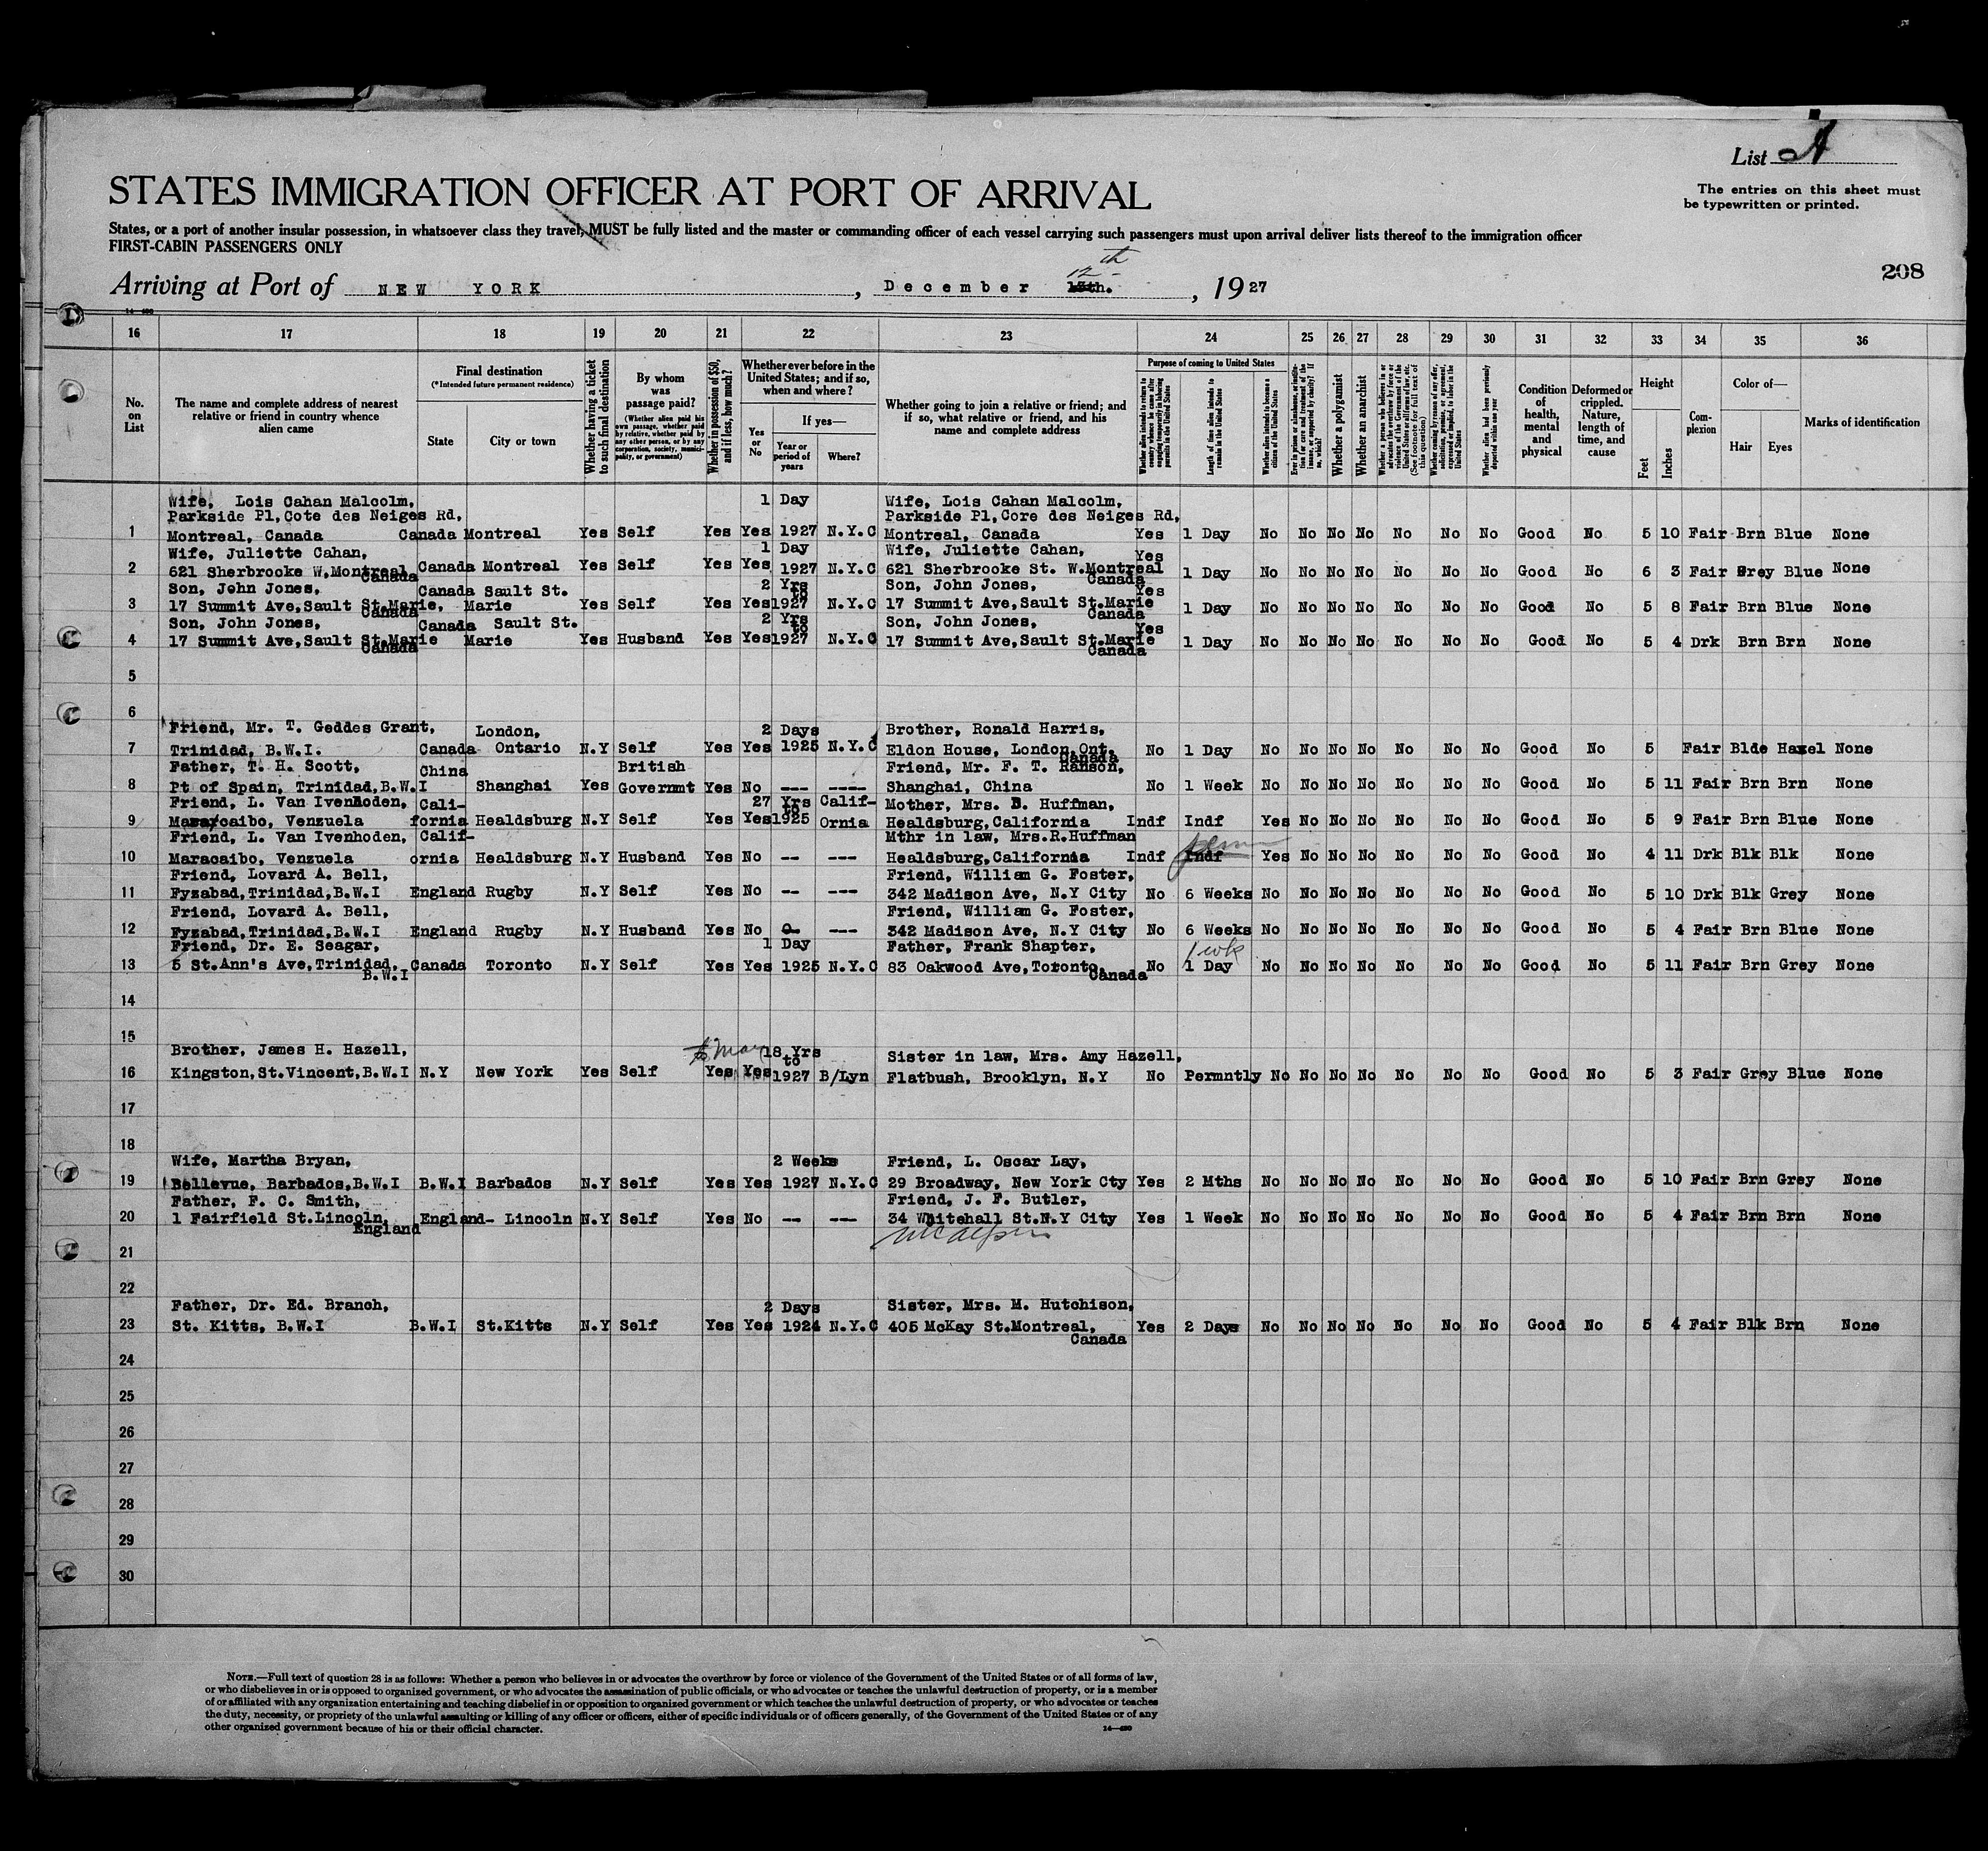 List A
The entries on this sheet must
be typewritten or printed.
STATES IMMIGRATION OFFICER AT PORT OF ARRIVAL
States, or a port of another insular possession, in whatsoever class they travel, MUST be fully listed and the master or commanding officer of each vessel carrying such passengers must upon arrival deliver lists thereof to the immigration officer
FIRST-CABIN PASSENGERS ONLY
208
12 th
Arriving at Port of NEW YORK, December 13th., 1927
16 17 18 19 20 21 22 23 24 25 26 27 28 29 30 31 32 33 34 35 36
No. on List
The name and complete address of nearest relative or friend in country whence alien came
Final destination
(*Intended future permanent residence)
State
City or town
Whether having a ticket to such final destination
By whom was passage paid?
(Whether alien paid his own passage, whether paid by relative, whether paid by any other person, or by any corporation, society, municipality, or government)
Whether in possession of $50, and if less, how much?
Whether ever before in the United States; and if so, when and where?
Yes or No
If yes—
Year or period of years
Where?
Whether going to join a relative or friend; and if so, what relative or friend, and his name and complete address
Purpose of coming to United States
Whether alien intends to return to country whence he came after engaging temporarily in laboring pursuits in the United States
Length of time alien intends to remain in the United States
Whether alien intends to become a citizen of the United States
Ever in prison or almshouse, or institution for care and treatment of the insane, or supported by charity? If so, which?
Whether a polygamist
Whether an anarchist
Whether a person who believes in or advocates the overthrow by force or violence of the Government of the United States or all forms of law, etc. (See footnote for full text of this question.)
Whether coming by reason of any offer, solicitation, promise, or agreement, expressed or implied, to labor in the United States
Whether alien had been previously deported within one year
Condition of health, mental and physical
Deformed or crippled. Nature, length of time, and cause
Height
Feet
Inches
Complexion
Color of—
Hair
Eyes
Marks of identification
Wife, Lois Cahan Malcolm, 1 Day Wife, Lois Cahan Malcolm,
Parkside Pl,Cote des Neiges Rd, Parkside Pl,Core des Neiges Rd,
1 Montreal, Canada Canada Montreal Yes Self Yes Yes 1927 N.Y.C Montreal, Canada Yes 1 Day No No No No No No No Good No 5 10 Fair Brn Blue None
Wife, Juliette Cahan, 1 Day Wife, Juliette Cahan, Yes
2 621 Sherbrooke W.Montreal Canada Canada Montreal Yes Self Yes Yes 1927 N.Y.C 621 Sherbrooke St. W.Montreal Canada 1 Day No No No No No No No Good No 6 3 Fair Grey Blue None
Son, John Jones, Canada Sault St. 2 Yrs to Son, John Jones, Yes
3 17 Summit Ave,Sault St.Marie, Canada Marie Yes Self Yes Yes 1927 N.Y.C 17 Summit Ave,Sault St.Marie Canada 1 Day No No No No No No No Good No 5 8 Fair Brn Blue None
Son, John Jones, Canada Sault St. 2 Yrs to Son, John Jones, Yes
4 17 Summit Ave,Sault St.Marie Canada Marie Yes Husband Yes Yes 1927 N.Y.C 17 Summit Ave,Sault St.Marie Canada 1 Day No No No No No No No Good No 5 4 Drk Brn Brn None
5
6
Friend, Mr. T. Geddes Grant, London, 2 Days Brother, Ronald Harris,
7 Trinidad, B.W.I. Canada Ontario N.Y Self Yes Yes 1925 N.Y.C Eldon House, London,Ont, Canada No 1 Day No No No No No No No Good No 5 Fair Blde Hazel None
Father, T. H. Scott, China British Friend, Mr. F. T. Ranson,
8 Pt of Spain, Trinidad,B.W.I Shanghai Yes Governmt Yes No --- ---- Shanghai, China No 1 Week No No No No No No No Good No 5 11 Fair Brn Brn None
Friend, L. Van Ivenhoden, Cali- 27 Yrs to Calif- Mother, Mrs. B. Huffman,
9 Maracaibo, Venzuela fornia Healdsburg N.Y Self Yes Yes 1925 Ornia Healdsburg,California Indf Indf Yes No No No No No No Good No 5 9 Fair Brn Blue None
Friend, L. Van Ivenhoden, Calif- Mthr in law, Mrs.R.Huffman
10 Maracaibo, Venzuela ornia Healdsburg N.Y Husband Yes No -- --- Healdsburg,California Indf Indf Yes No No No No No No Good No 4 11 Drk Blk Blk None
Friend, Lovard A. Bell, Friend, William G. Foster,
11 Fyzabad,Trinidad,B.W.I England Rugby N.Y Self Yes No -- --- 342 Madison Ave, N.Y City No 6 Weeks No No No No No No No Good No 5 10 Drk Blk Grey None
Friend, Lovard A. Bell, Friend, William G. Foster,
12 Fyzabad,Trinidad,B.W.I England Rugby N.Y Husband Yes No -- --- 342 Madison Ave, N.Y City No 6 Weeks No No No No No No No Good No 5 4 Fair Brn Blue None
Friend, Dr. E. Seagar, 1 Day Father, Frank Shapter, 1 wk
13 5 St.Ann's Ave,Trinidad, B.W.I Canada Toronto N.Y Self Yes Yes 1925 N.Y.C 83 Oakwood Ave,Toronto, Canada No 1 Day No No No No No No No Good No 5 11 Fair Brn Grey None
14
15
Brother, James H. Hazell, to May 18 Yrs to Sister in law, Mrs. Amy Hazell,
16 Kingston,St.Vincent,B.W.I N.Y New York Yes Self Yes Yes 1927 B/Lyn Flatbush, Brooklyn, N.Y No Permntly No No No No No No No Good No 5 3 Fair Grey Blue None
17
18
Wife, Martha Bryan, 2 Weeks Friend, L. Oscar Lay,
19 Bellevue, Barbados,B.W.I B.W.I Barbados N.Y Self Yes Yes 1927 N.Y.C 29 Broadway, New York Cty Yes 2 Mths No No No No No No No Good No 5 10 Fair Brn Grey None
Father, F. C. Smith, Friend, J. F. Butler,
20 1 Fairfield St.Lincoln, England England- Lincoln N.Y Self Yes No -- --- 34 Whitehall St.N.Y City Yes 1 Week No No No No No No No Good No 5 4 Fair Brn Brn None
McAlpin
21
22
Father, Dr. Ed. Branch, 2 Days Sister, Mrs. M. Hutchison,
23 St. Kitts, B.W.I B.W.I St.Kitts N.Y Self Yes Yes 1924 N.Y.C 405 McKay St.Montreal, Canada Yes 2 Days No No No No No No No Good No 5 4 Fair Blk Brn None
24
25
26
27
28
29
30
NOTE.—Full text of question 28 is as follows: Whether a person who believes in or advocates the overthrow by force or violence of the Government of the United States or of all forms of law,
or who disbelieves in or is opposed to organized government, or who advocates the assassination of public officials, or who advocates or teaches the unlawful destruction of property, or is a member
of or affiliated with any organization entertaining and teaching disbelief in or opposition to organized government or which teaches the unlawful destruction of property, or who advocates or teaches
the duty, necessity, or propriety of the unlawful assaulting or killing of any officer or officers, either of specific individuals or of officers generally, of the Government of the United States or of any
other organized government because of his or their official character.
14—480